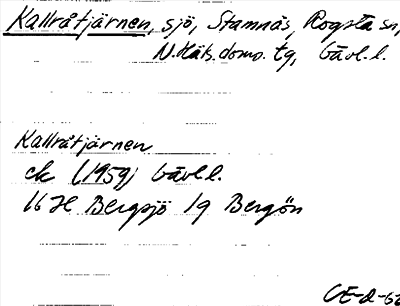 Kallråtjärnen, sjö, Stamnäs, Rogsta sn,
N.Häls.doms. tg, Gävl.l.
Kallråtjärnen
ek (1959) Gävl.l.
16 H Bergsjö 1g Bergön